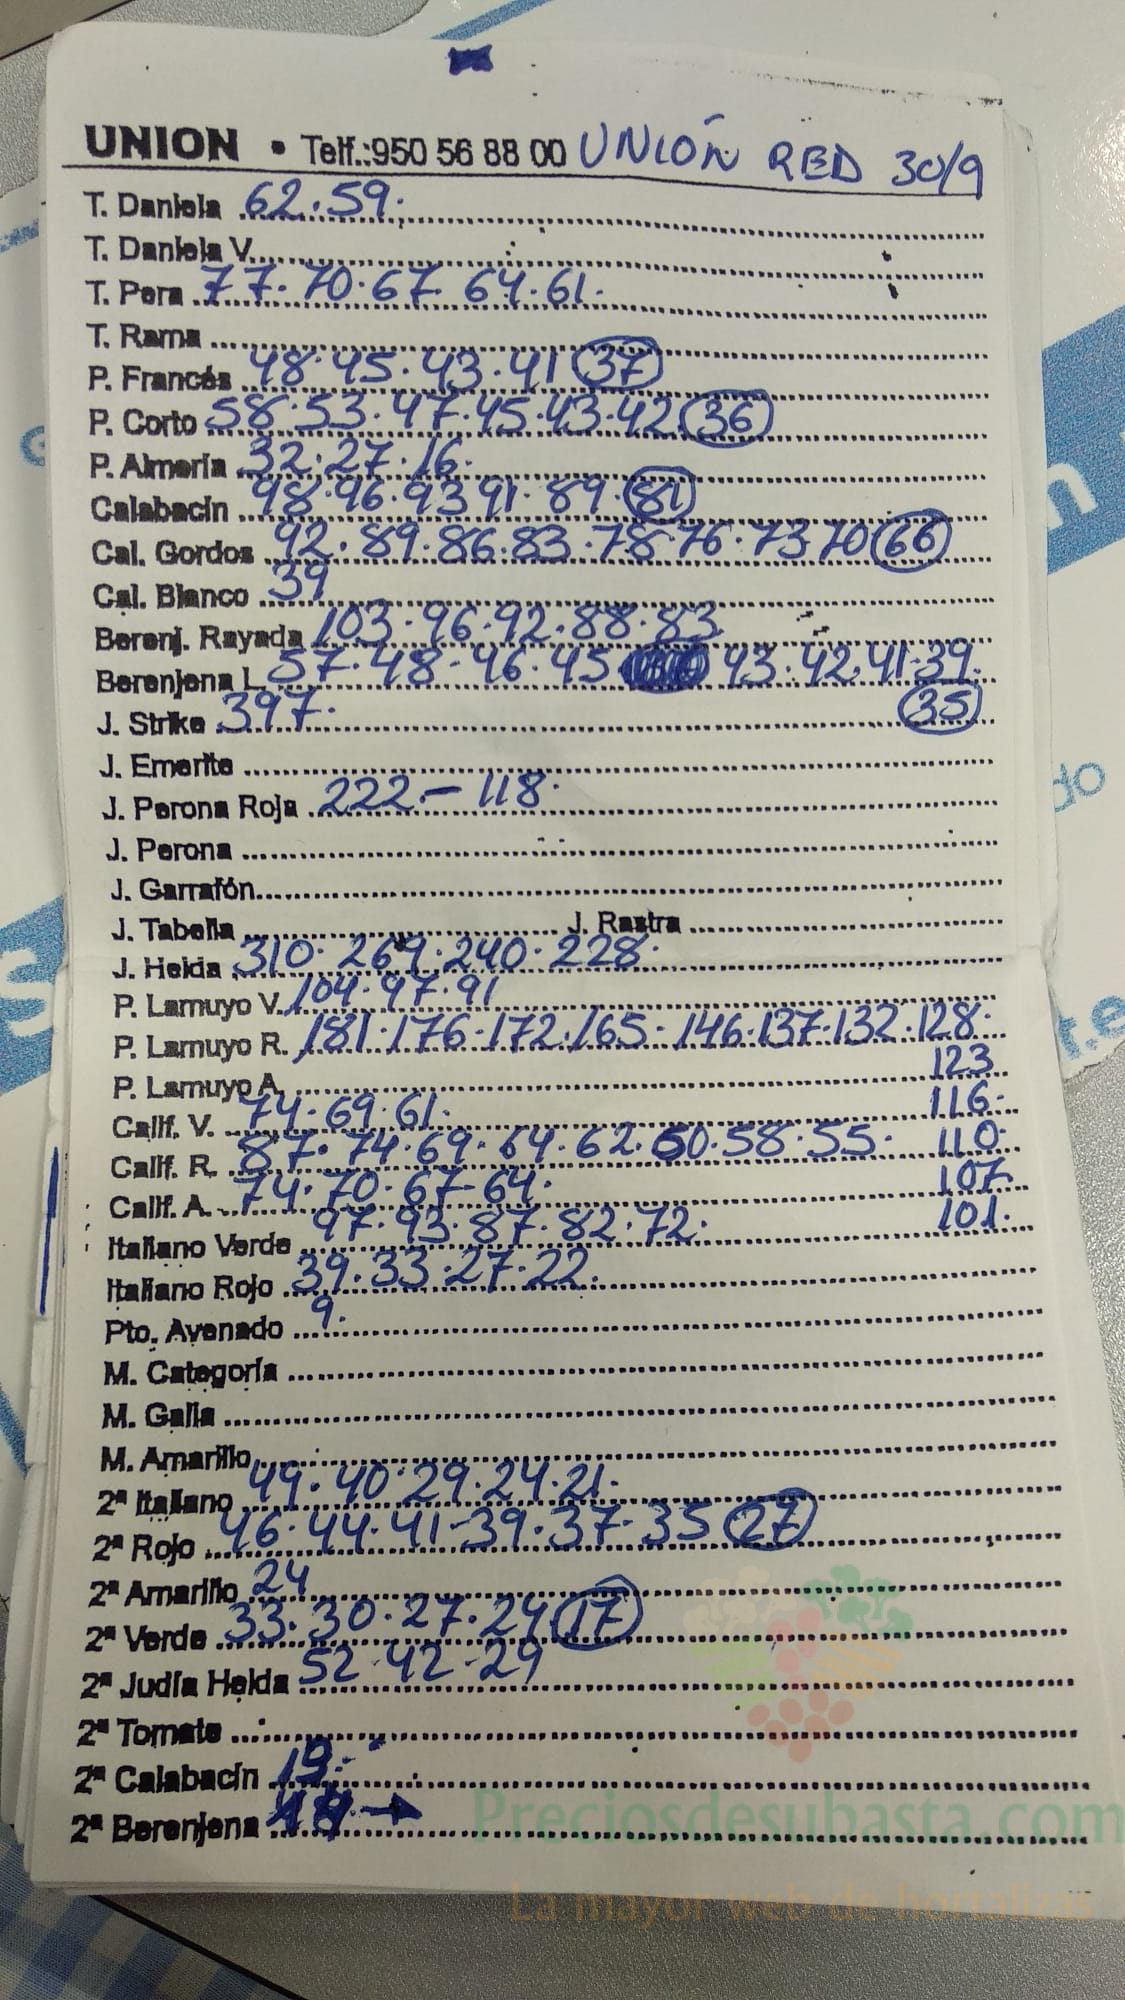 UNION • Telf.:950 56 88 00 UNIÓN RED 30/9
T. Daniela 62.59.
T. Daniela V.
T. Pera 77.70.67.64.61.
T. Rama
P. Francés 48.45.43.41 37
P. Corto 58.53.47.45.43.42 36
P. Almería 32.27.16.
Calabacín 98.96.93 91.89. 81
Cal. Gordos 92.89.86.83.78 76.73 70 66
Cal. Blanco 39
Berenj. Rayada 103.96.92.88.83
Berenjena L. 57.48-46.45 43.42.41.39.
J. Strike 397. 35
J. Emerite
J. Perona Roja 222.- 118.
J. Perona
J. Garrafón
J. Tabella J. Rastra
J. Helda 310.269.240.228.
P. Lamuyo V. 104.97.91
P. Lamuyo R. 181.176.172.165.146.137.132.128.
P. Lamuyo A. 123
Calif. V. 74.69.61. 116.
Calif. R. 87.74.69.64.62.60.58.55. 110.
Calif. A. 74.70.67-64. 107.
Italiano Verde 97.93.87.82.72. 101.
Italiano Rojo 39.33.27.22.
Pto. Avenado 9.
M. Categoría
M. Galia
M. Amarillo
2ª Italiano 49.40.29.24.21.
2ª Rojo 46.44.41-39.37-35 27
2ª Amarillo 24
2ª Verde 33.30.27.24 17
2ª Judía Helda 52-42-29
2ª Tomate
2ª Calabacín 19.
2ª Berenjena
Preciosdesubasta.com
La mayor web de hortalizas